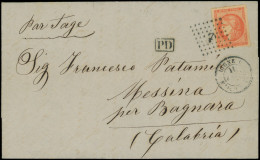 Par Tage
PD
Sig Francesco Patami
Messina
per Bagnara
(Calabria)